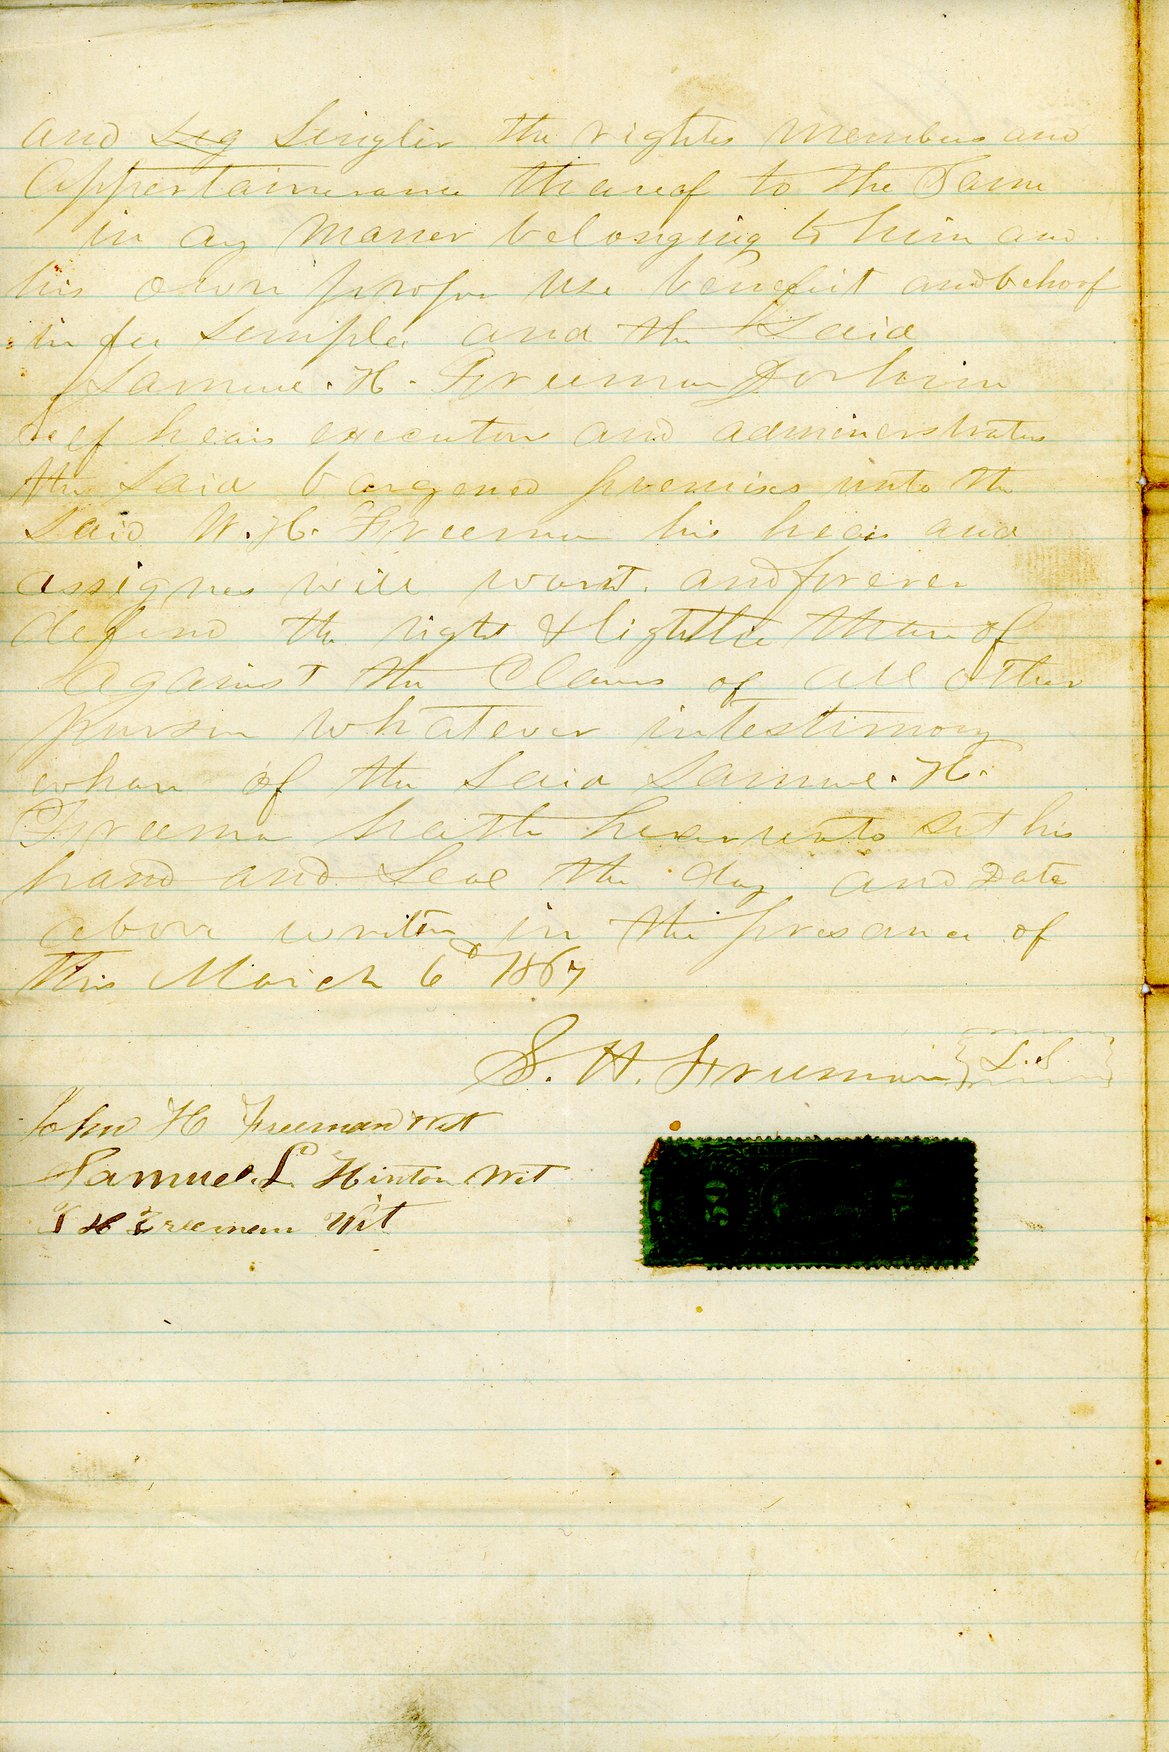 and Singler the rights members and
appertainerance thareof to the Same
in ay maner belonging to him and
his own proper use benefit and behoof
in fee Simple and the Said
Samuel . H . Freeman for him
self heairs executors and adminerstrators
the Said bargened premises unto the
Said W. H. Freeman his heairs and
assignes will warnt. and forever
defend the right & tightle thare of
against the Clames of all other
person whatever intestimony
whare of the Said Samuel . H.
Freeman hath hearunto set his
hand and Seal the day and Date
above writen in the presance of
this March 6d 1867
S. H. Freeman {L.S}
John H Freeman Wit
Samuel. L. Hinton Wit
H Freeman Wit
50